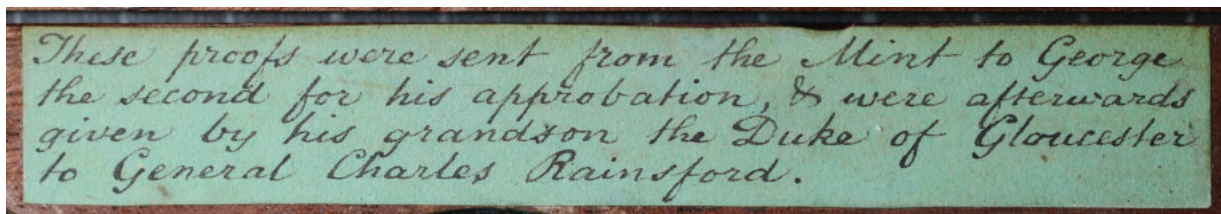 These proofs were sent from the Mint to George
the second for his approbation, & were afterwards
given by his grandson the Duke of Gloucester
to General Charles Rainsford.